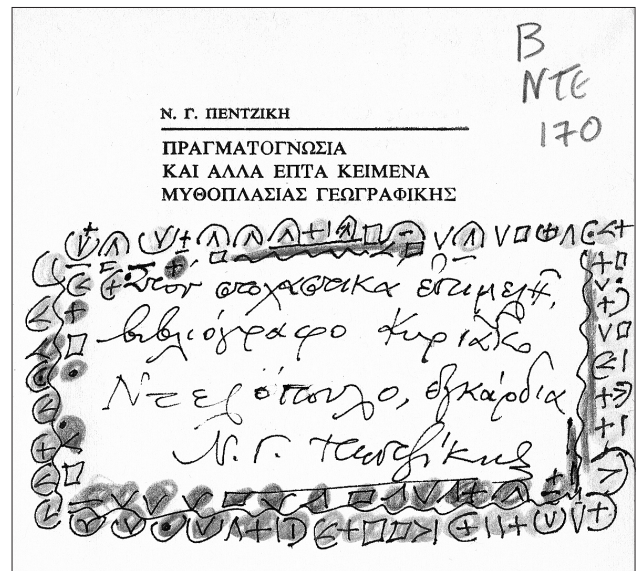 Β
ΝΤΕ
170
Ν. Γ. ΠΕΝΤΖΙΚΗ
ΠΡΑΓΜΑΤΟΓΝΩΣΙΑ
ΚΑΙ ΑΛΛΑ ΕΠΤΑ ΚΕΙΜΕΝΑ
ΜΥΘΟΠΛΑΣΙΑΣ ΓΕΩΓΡΑΦΙΚΗΣ
Στόν στοχαστικά ἐπιμελῆ,
βιβλιόγραφο Κυριάκο
Ντελόπουλο, ἐγκάρδια
Ν. Γ. Πεντζίκης